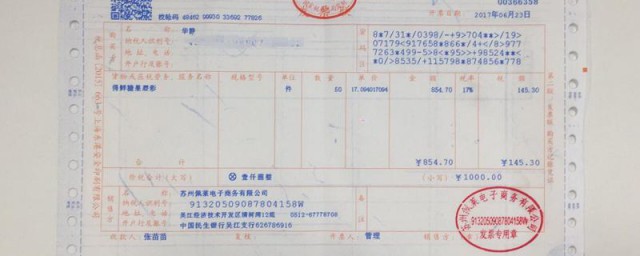 00388358
校验码 48462 00950 33692 77826
开票日期: 2017年06月23日
名 称: 华静
纳税人识别号:
地 址、电 话:
开户行及账号:
8*7/31*/0398/-+9>704**>/19>
07179<917658*866*/4+</8>977
7263*499-5>8<*95>>+98524**<
*0/>8535/+115798*874856*778
货物或应税劳务、服务名称 规格型号 单位 数量 单价 金额 税率 税额
件 50 17.094017094 854.70 17% 145.30
合 计 ¥854.70 ¥145.30
价税合计(大写) ⊗壹仟圆整 (小写) ¥1000.00
苏州佩莱电子商务有限公司
纳税人识别号: 91320509087804158W
地 址、电 话: 吴江经济技术开发区 0512-87778708
开户行及账号: 中国民生银行吴江支行626786916
收款人: 张苗苗 复核: 开票人: 管理 销售方:
苏州佩莱电子商务有限公司
91320509087804158W
发票专用章